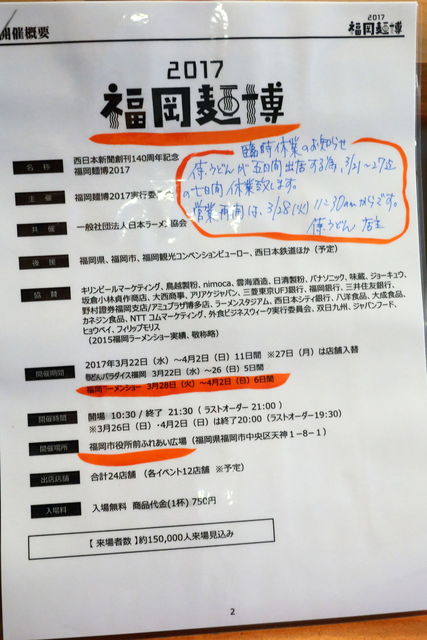 開催概要
2017
福岡麺博
2017
福岡麺博
臨時休業のお知らせ
侍.うどんが五日間出店する為、3/21～27迄
の七日間休業致します。
営業再開は、3/28(火) 11:30amからです。
侍.うどん 店主
名 称
西日本新聞創刊140周年記念
福岡麺博2017
主 催
福岡麺博2017実行委
共 催
一般社団法人日本ラーメン協会
後 援
福岡県、福岡市、福岡観光コンベンションビューロー、西日本鉄道ほか（予定）
協 賛
キリンビールマーケティング、鳥越製粉、nimoca、雲海酒造、日清製粉、パナソニック、味蔵、ジョーキュウ、
坂倉小林貞作商店、大西商事、アリアケジャパン、三菱東京UFJ銀行、福岡銀行、三井住友銀行、
野村證券福岡支店/アミュプラザ博多店、ラーメンスタジアム、西日本シティ銀行、八洋食品、大成食品、
カネジン食品、NTTコムマーケティング、外食ビジネスウィーク実行委員会、双日九州、ジャパンフード、
ヒョウベイ、フィリップモリス
（2015福岡ラーメンショー実績、敬称略）
開催期間
2017年3月22日（水）～4月2日（日）11日間 ※27日（月）は店舗入替
麺パラダイス福岡 3月22日（水）～26（日）5日間
福岡ラーメンショー 3月28日（火）～4月2日（日）6日間
開催時間
開場 10:30 / 終了 21:30（ ラストオーダー 21:00 ）
※3月26日（日）・4月2日（日）は終了20:00（ラストオーダー19:30）
開催場所
福岡市役所前ふれあい広場（福岡県福岡市中央区天神１−８−１）
出店店舗
合計24店舗 （各イベント12店舗 ※予定）
入場料
入場無料 商品代金(1杯) 750円
【 来場者数 】約150,000人来場見込み
2